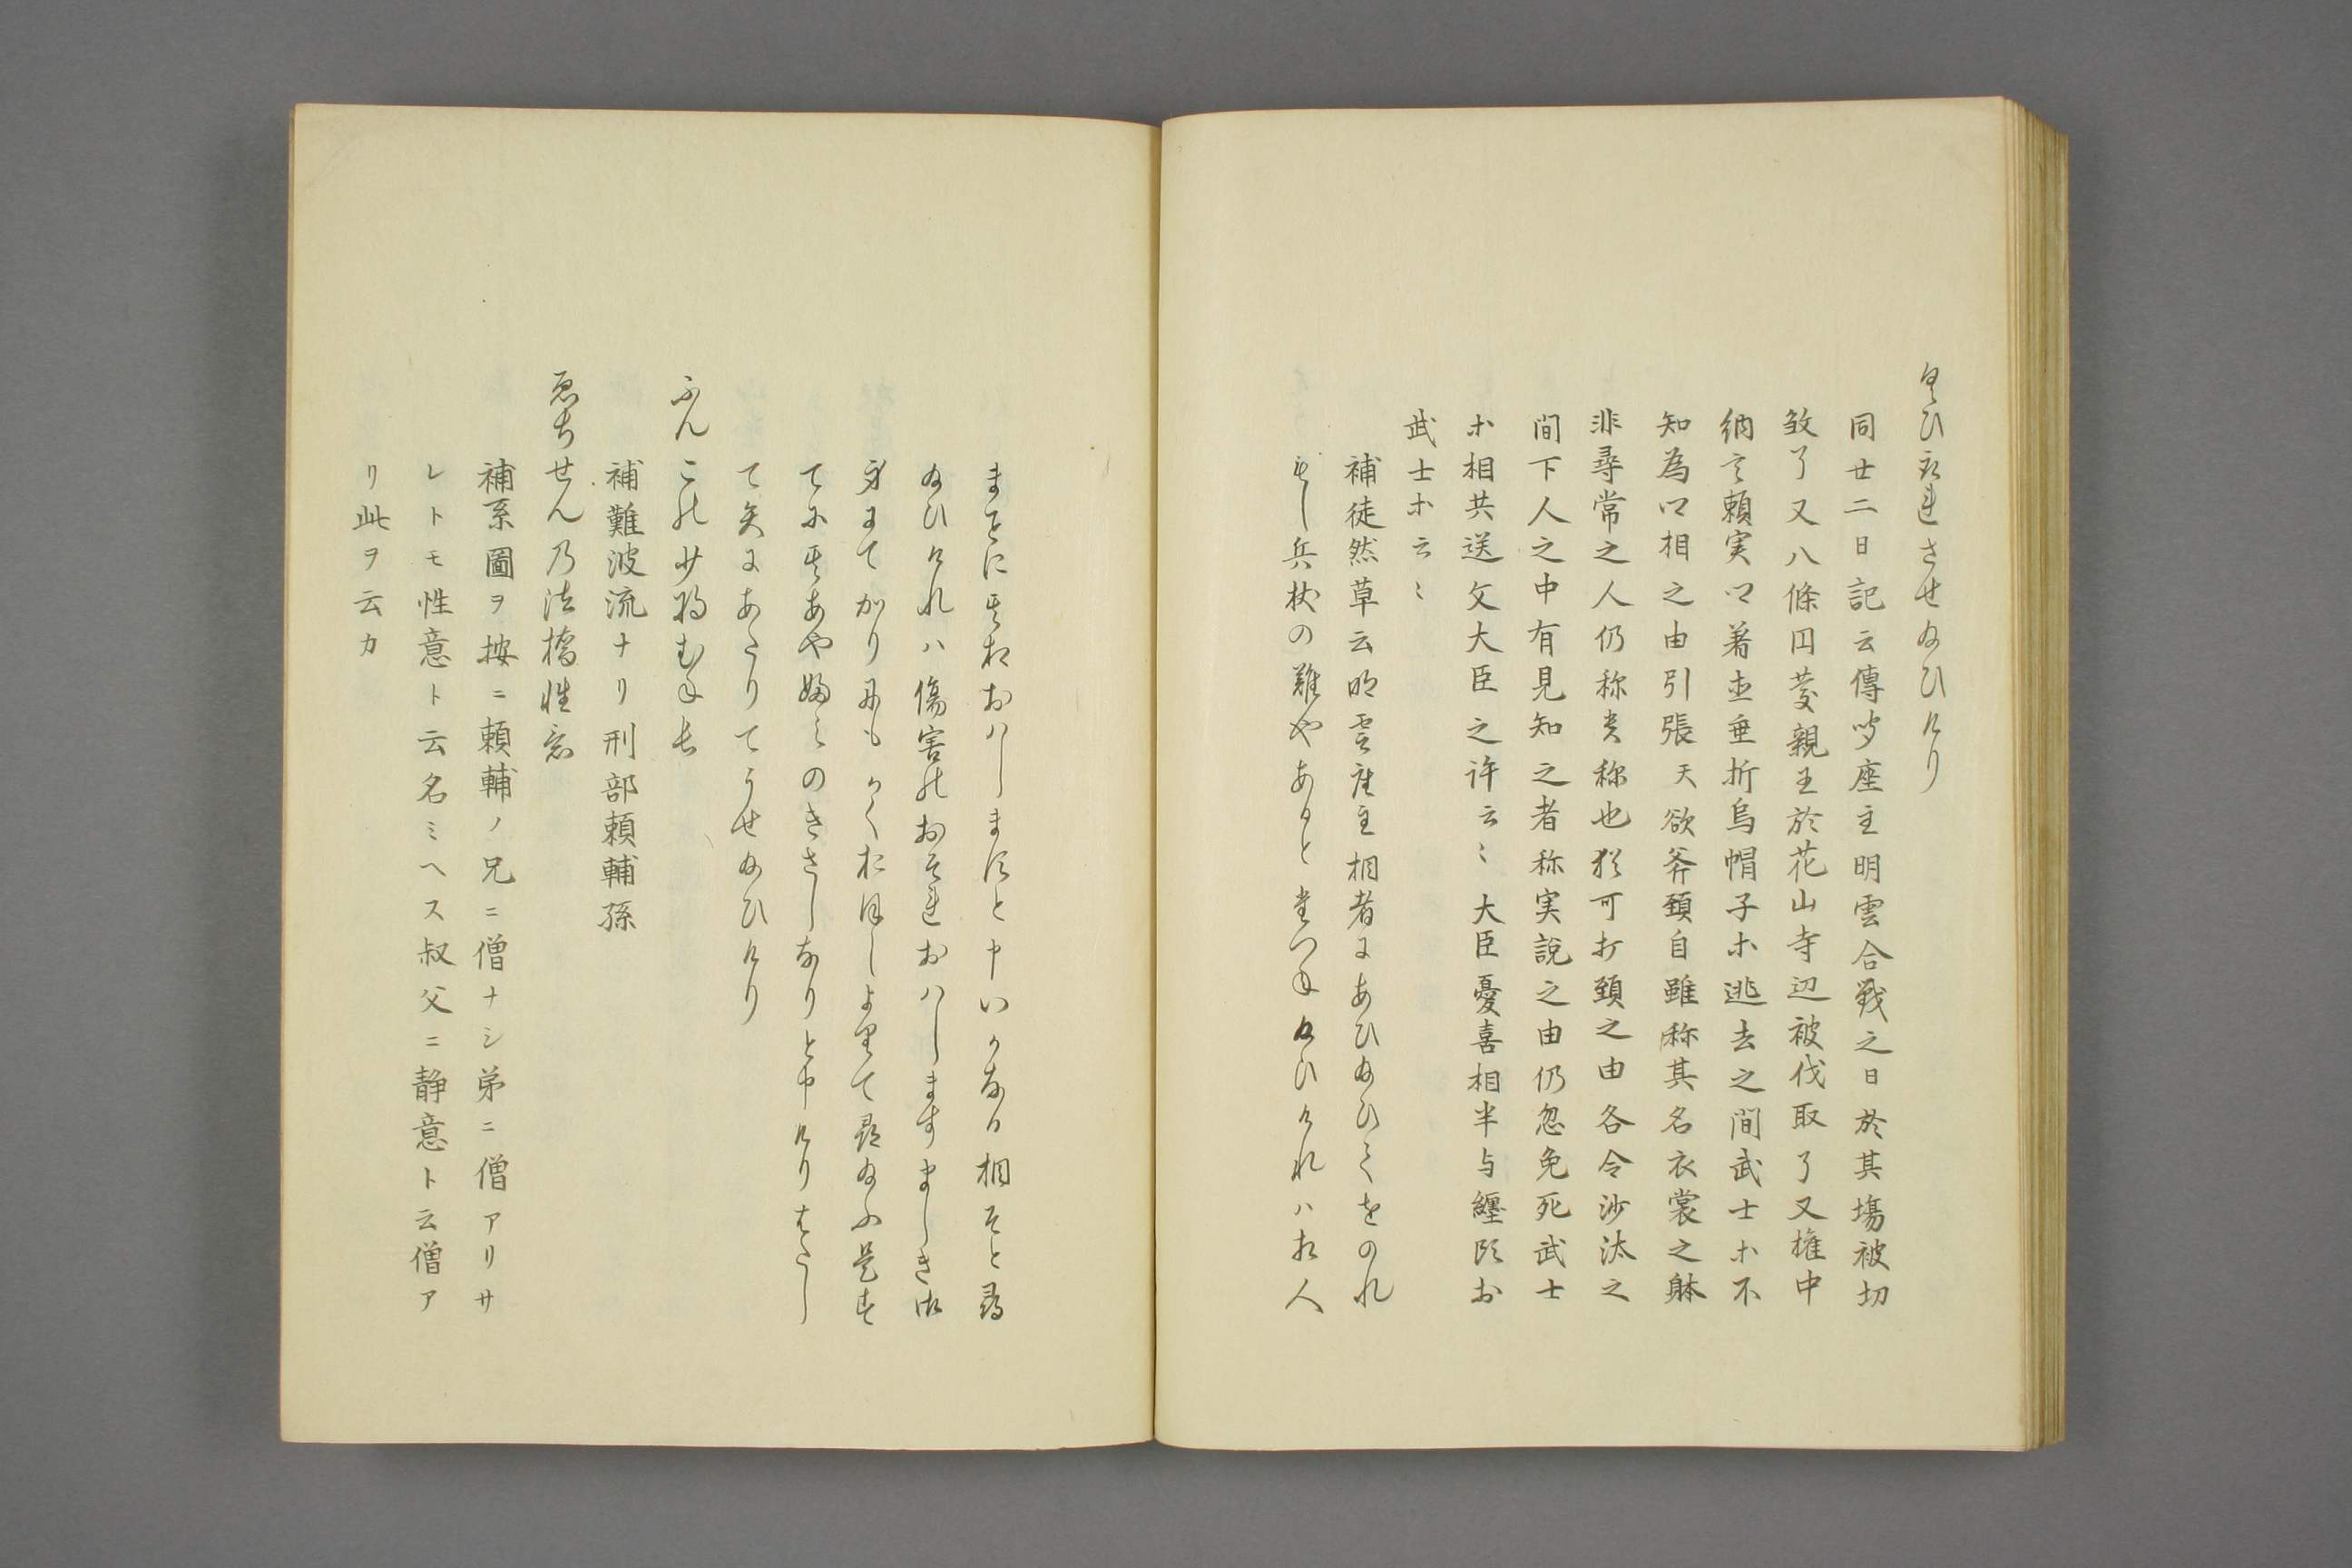 同廿二日記云傳聞座主明雲合戦之日於其場被切
敓了又八條円慶親王於花山寺辺被伐取了又権中
納言頼実口著直垂折烏帽子ホ逃去之間武士ホ不
知為口相之由引張天欲斧頚自雖称其名衣裳之躰
非尋常之人仍称貴称也猶可打頚之由各令沙汰之
間下人之中有見知之者称実説之由仍忽免死武士
ホ相共送父大臣之許云〻大臣憂喜相半与纏頭お
武士ホ云〻
補徒然草云明雲座主相者にあひ給ひてをのれ
もし兵杖の難やあると尋つね給ひけれハ相人
まことに其相おハしますと申いかなる相そと尋
給ひけれハ傷害のおそれおハしますましき御
身にてかりにもかくおほしよりて尋給ふ是す
てに其あやふみのきさしなりと申けりはたし
て矢にあたりてうせ給ひけり
ふんこの少将むね長
補難波流ナリ刑部頼輔孫
ゑちせん乃法橋性意
補系圖ヲ按ニ頼輔ノ兄ニ僧ナシ弟ニ僧アリサ
レトモ性意ト云名ミヘス叔父ニ静意ト云僧ア
リ此ヲ云カ